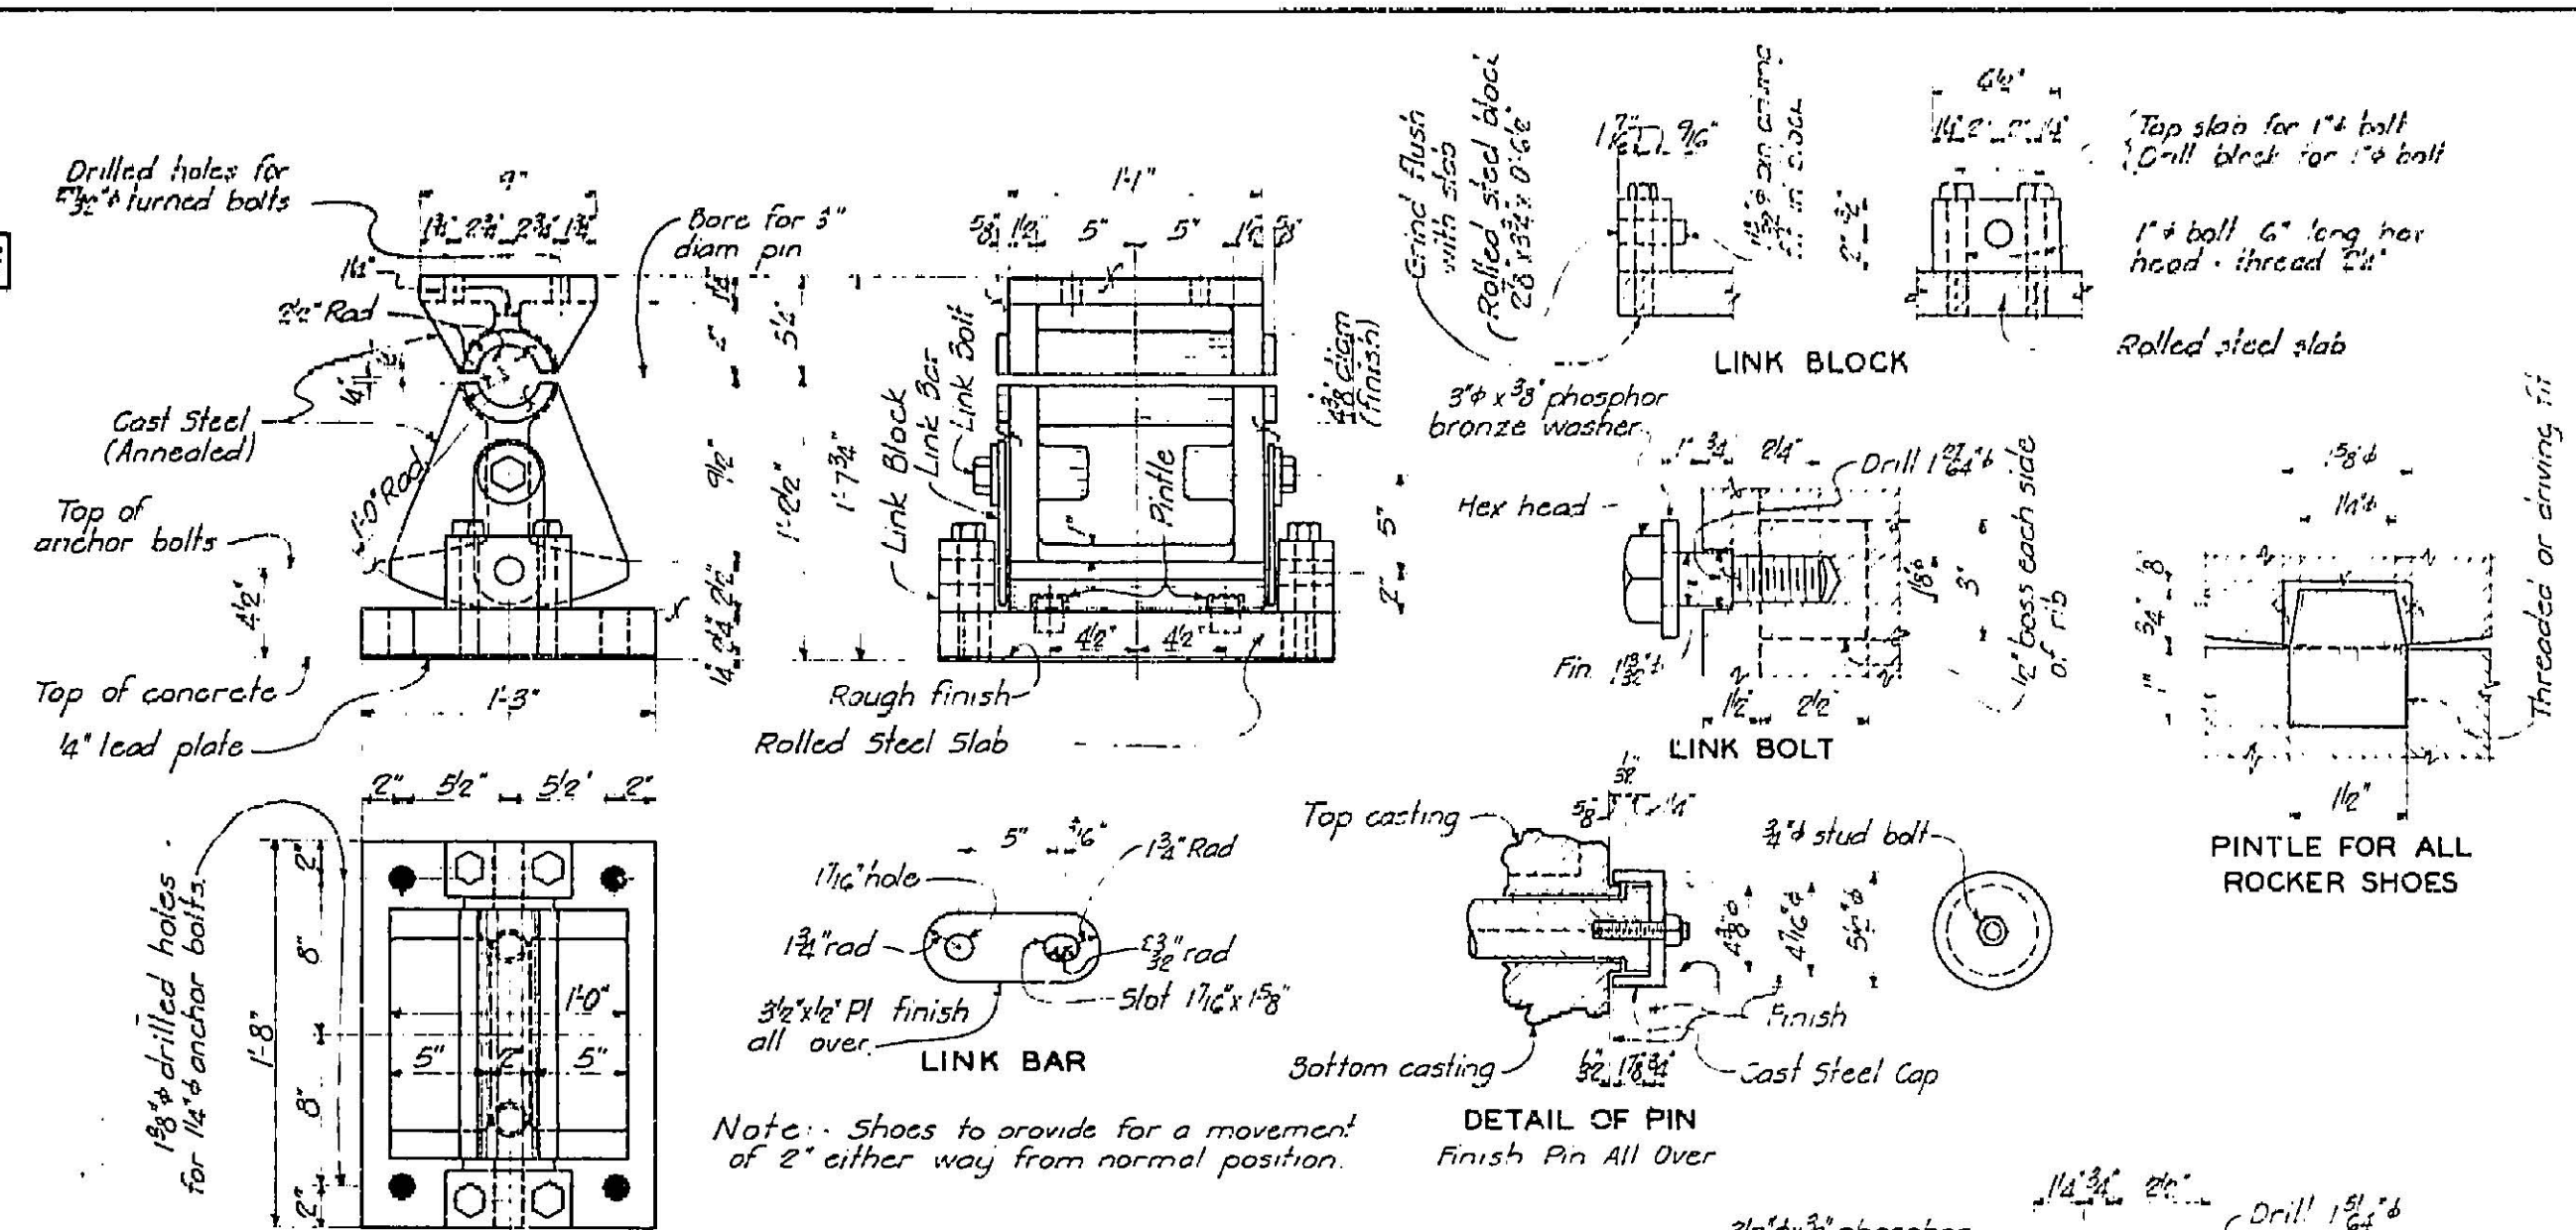 Drilled holes for
turned bolts
9"
1¾" 2¾" 2¾" 1¾"
Bore for 3"
diam pin
1½"
2½" Rad
Cast Steel
(Annealed)
1'-0" Rad
Top of
anchor bolts
4½"
Top of concrete
¼" lead plate
1'-3"
5½"
9½"
1'-2½"
1'-7¾"
1'-1"
⅝" 1½" 5" 5" 1½" ⅝"
Link Block
Link Bar
Link Bolt
Pintle
1"
4⅜" diam
(finish)
5"
2"
4½" 4½"
Rough finish
Rolled Steel Slab
Grind flush
with slab
Rolled steel block
1⁷⁄₁₆" ⁹⁄₁₆"
Top slab for 1"ϕ bolt
Drill block for 1"ϕ bolt
1"ϕ bolt 6" long hex
head · thread
Rolled steel slab
LINK BLOCK
3"ϕ x ⅜" phosphor
bronze washer
1" ¾" 2¼"
Drill 1²⁷⁄₆₄"ϕ
Hex head
Fin. 1¹³⁄₃₂"ϕ
3"
½" boss each side
of rib
1½" 2½"
LINK BOLT
1⅝"ϕ
1¼"ϕ
¾" ⅛"
1"
Threaded or driving fit
1½"
PINTLE FOR ALL
ROCKER SHOES
2" 5½" 5½" 2"
1⅜"ϕ drilled holes
for 1¼"ϕ anchor bolts.
1'-8"
2"
8"
8"
2"
1'-0"
5" 2" 5"
5" ³⁄₁₆"
1¾" Rad
1⁷⁄₁₆" hole
1¾" rad
²³⁄₃₂" rad
Slot 1⁷⁄₁₆" x 1⅝"
3½"x½" Pl finish
all over.
LINK BAR
Note:- Shoes to provide for a movement
of 2" either way from normal position.
Top casting
⅝" 1¼"
¾"ϕ stud bolt
4⅜"ϕ
4⁷⁄₁₆"ϕ
Finish
Bottom casting
1⅞" ¾"
Cast Steel Cap
DETAIL OF PIN
Finish Pin All Over
1¼" ¾" 2½"
Drill 1⁵¹⁄₆₄"ϕ
phosphor